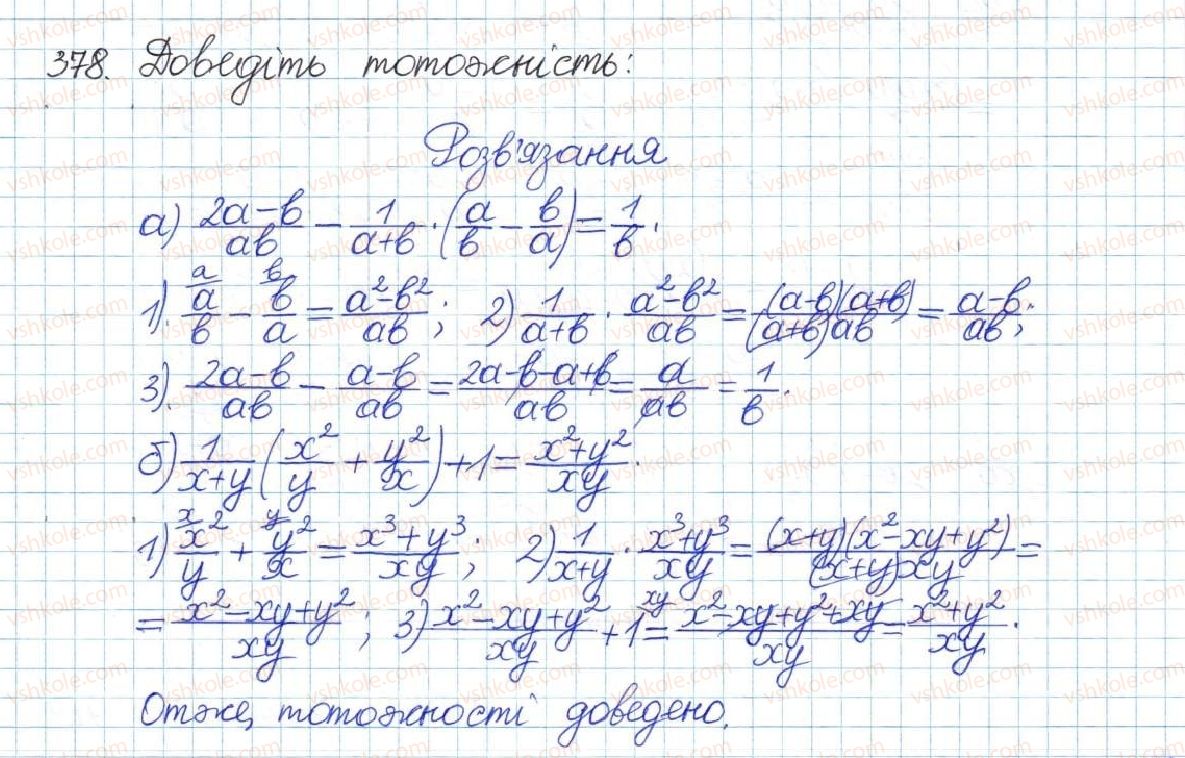 378. Доведіть тотожність:
Розв'язання
а) \frac{2a-b}{ab} - \frac{1}{a+b} \cdot (\frac{a}{b} - \frac{b}{a}) = \frac{1}{b}.
1). \frac{a}{b}^{a} - \frac{b}{a}^{b} = \frac{a^2-b^2}{ab}; 2) \frac{1}{a+b} \cdot \frac{a^2-b^2}{ab} = \frac{(a-b)(a+b)}{(a+b)ab} = \frac{a-b}{ab};
3). \frac{2a-b}{ab} - \frac{a-b}{ab} = \frac{2a-b-a+b}{ab} = \frac{a}{ab} = \frac{1}{b}.
б) \frac{1}{x+y} (\frac{x^2}{y} + \frac{y^2}{x}) + 1 = \frac{x^2+y^2}{xy}.
1) \frac{x^2}{y}^{x} + \frac{y^2}{x}^{y} = \frac{x^3+y^3}{xy}; 2) \frac{1}{x+y} \cdot \frac{x^3+y^3}{xy} = \frac{(x+y)(x^2-xy+y^2)}{(x+y)xy} =
= \frac{x^2-xy+y^2}{xy}; 3) \frac{x^2-xy+y^2}{xy} + 1^{xy} = \frac{x^2-xy+y^2+xy}{xy} = \frac{x^2+y^2}{xy}.
Отже, тотожності доведено.